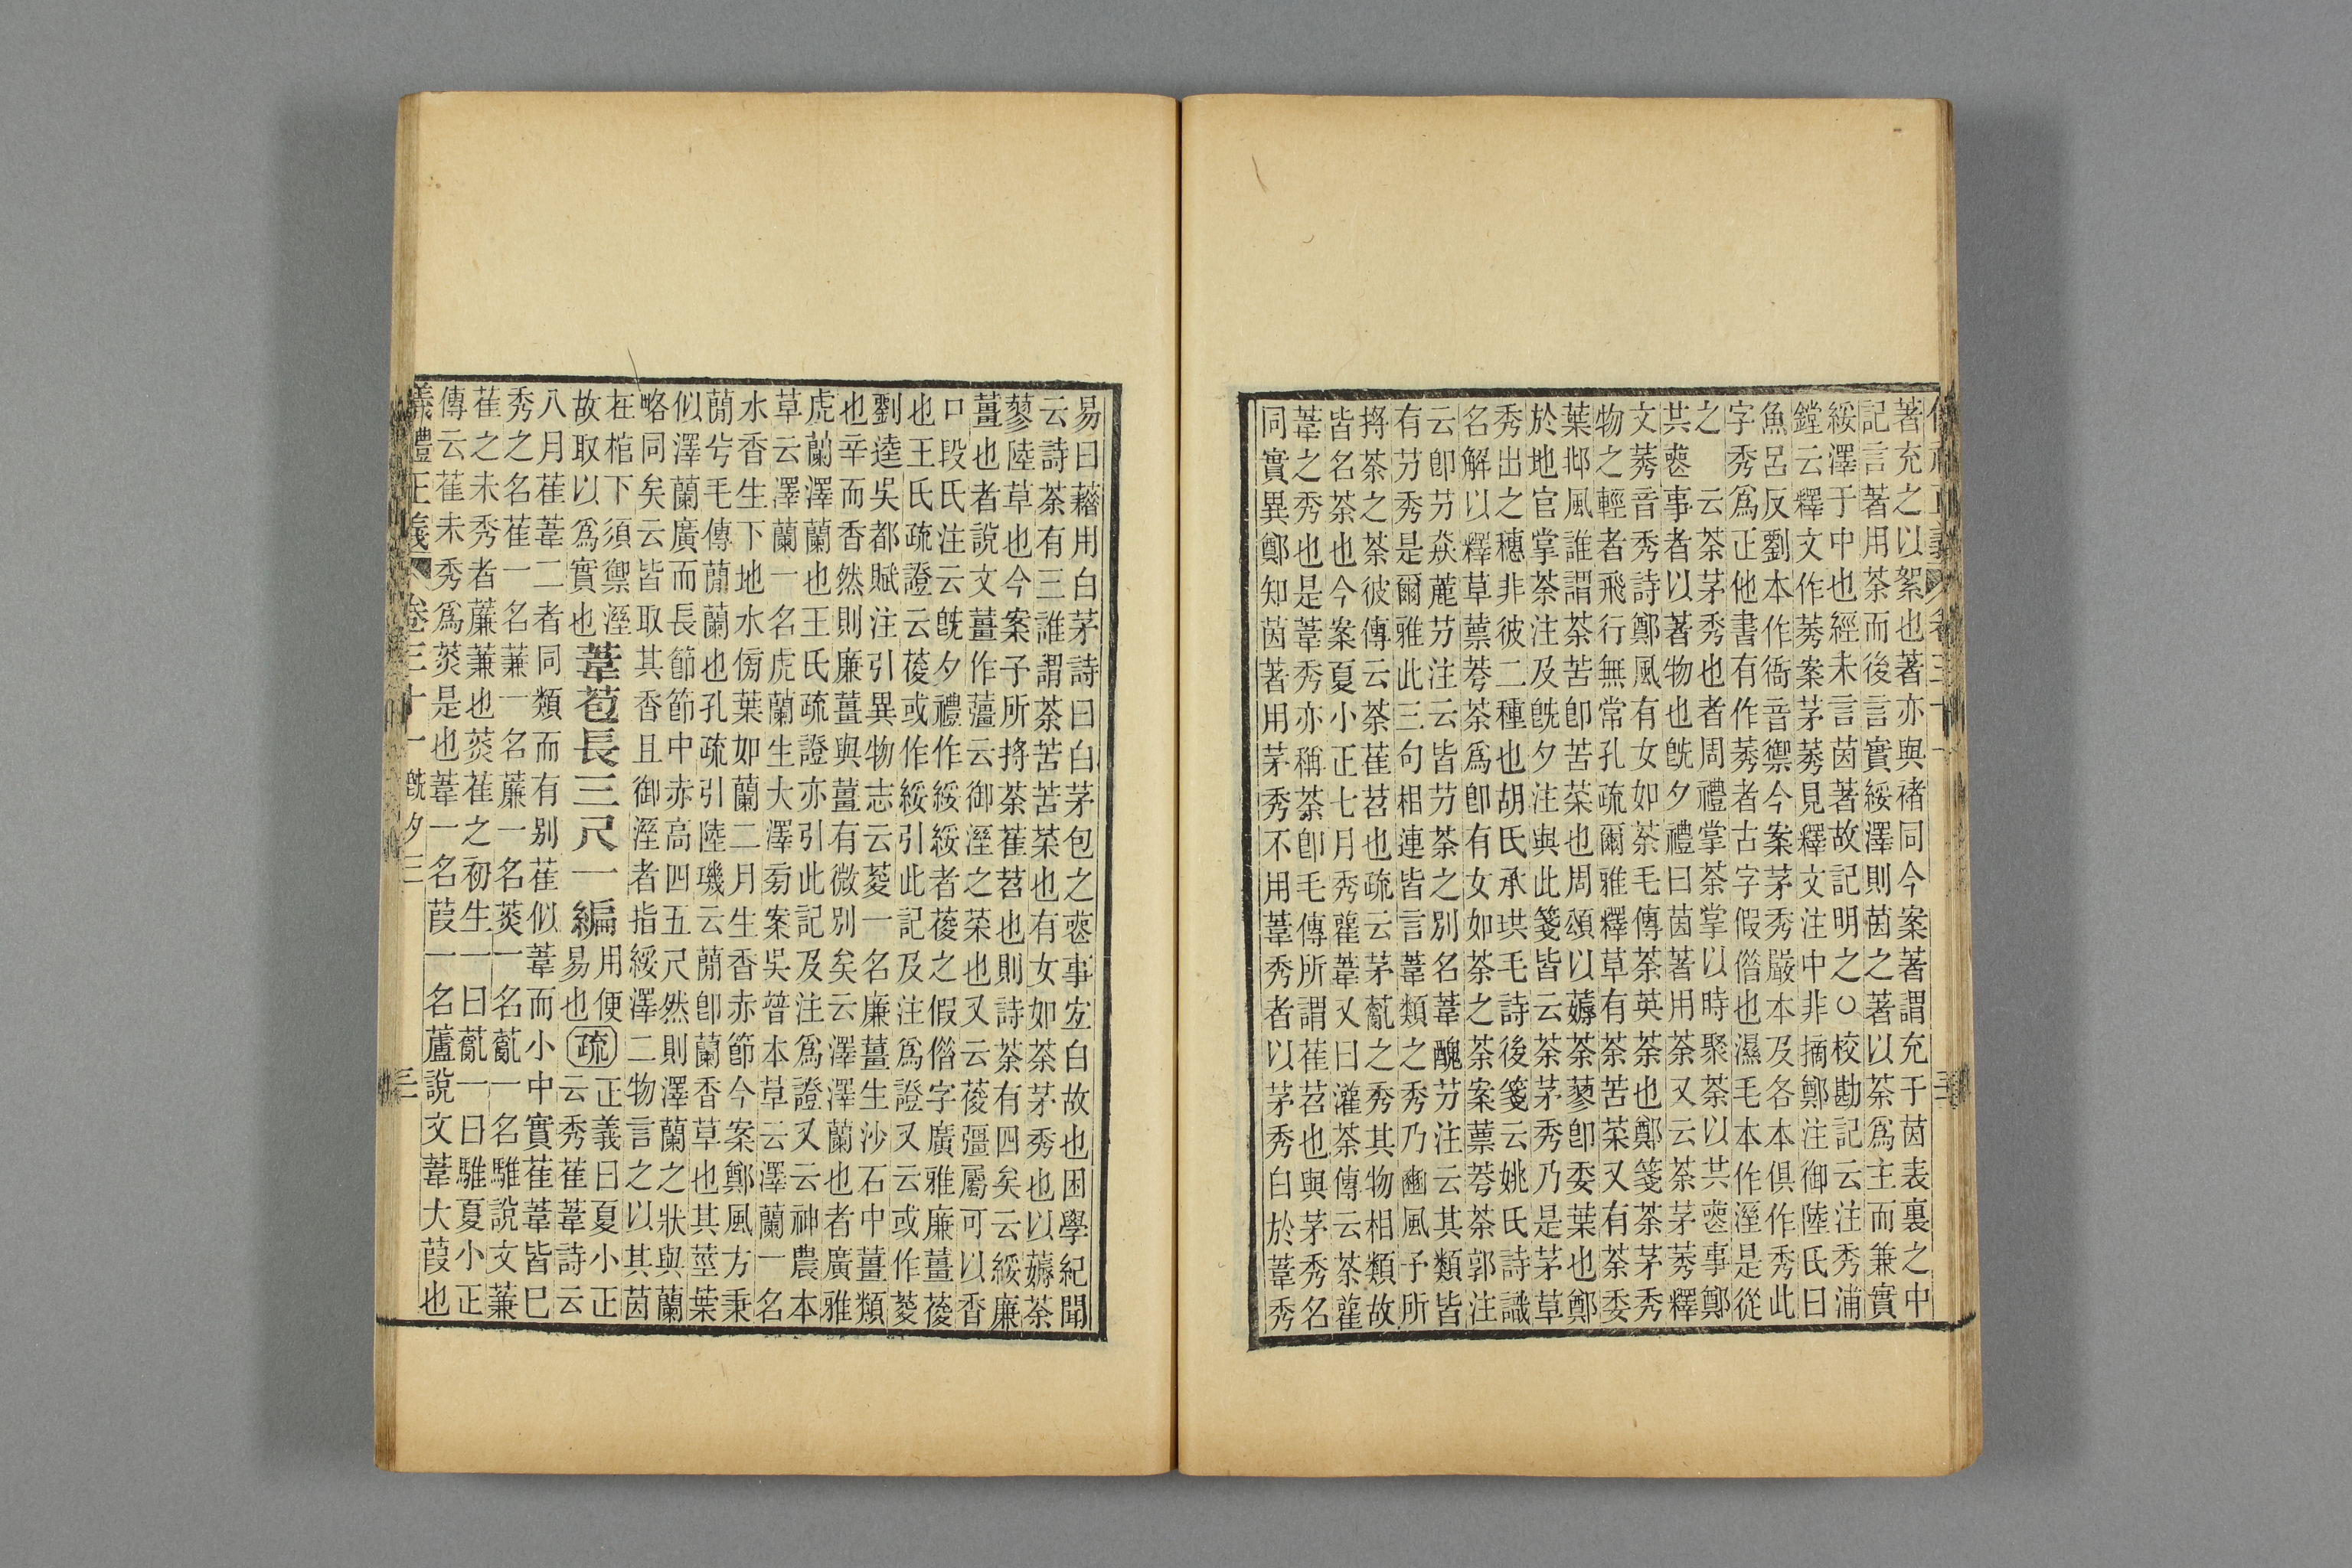 著充之以絮也著亦與褚同今案著謂充于茵表裏之中
記言著用荼而後言實綏澤則茵之著以荼爲主而兼實
綏澤于中也經未言茵著故記明之○校勘記云注秀浦
鏜云釋文作莠案茅莠見釋文注中非摘鄭注御陸氏曰
魚呂反劉本作衙音禦今案茅秀嚴本及各本俱作秀此
字秀爲正他書有作莠者古字假僭也濕毛本作溼是從
之　云荼茅秀也者周禮掌荼掌以時聚荼以共喪事鄭
共喪事者以著物也旣夕禮曰茵著用荼又云荼茅莠釋
文莠音秀詩鄭風有女如荼毛傳荼英荼也鄭箋荼茅秀
物之輕者飛行無常孔疏爾雅釋草有荼苦菜又有荼委
葉邶風誰謂荼苦卽苦菜也周頌以薅荼蓼卽委葉也鄭
於地官掌荼注及旣夕注與此箋皆云荼茅秀乃是茅草
秀出之穗非彼二種也胡氏承珙毛詩後箋云姚氏詩識
名解以釋草蔈荂荼爲卽有女如荼之荼案蔈荂荼郭注
云卽芀猋藨芀注云皆芀荼之別名葦醜芀注云其類皆
有芀秀是爾雅此三句相連皆言葦類之秀乃豳風予所
捋荼之荼彼傳云荼萑苕也疏云茅薍之秀其物相類故
皆名荼也今案夏小正七月秀雚葦又曰灌荼傳云荼雚
葦之秀也是葦秀亦稱荼卽毛傳所謂萑苕也與茅秀名
同實異鄭知茵著用茅秀不用葦秀者以茅秀白於葦秀
易曰藉用白茅詩曰白茅包之喪事宐白故也困學紀聞
云詩荼有三誰謂荼苦苦菜也有女如荼茅秀也以薅荼
蓼陸草也今案子所捋荼萑苕也則詩荼有四矣云綏廉
薑也者說文薑作䕬云御溼之菜也又云葰彊屬可以香
口段氏注云旣夕禮作綏綏者葰之假僭字廣雅廉薑葰
也王氏疏證云葰或作綏引此記及注爲證又云或作荾
劉逵吳都賦注引異物志云荾一名廉薑生沙石中薑類
也辛而香然則廉薑與薑有微別矣云澤澤蘭也者廣雅
虎蘭澤蘭也王氏疏證亦引此記及注爲證又云神農本
草云澤蘭一名虎蘭生大澤旁案吳普本草云澤蘭一名
水香生下地水傍葉如蘭二月生香赤節今案鄭風方秉
蕑兮毛傳蕑蘭也孔疏引陸璣云蕑卽蘭香草也其莖葉
似澤蘭廣而長節節中赤高四五尺然則澤蘭之狀與蘭
略同矣云皆取其香且御溼者指綏澤二物言之以其茵
在棺下須禦溼
故取以爲實也葦苞長三尺一編用便易也疏正義曰夏小正
云秀萑葦詩云
八月萑葦二者同類而有別萑似葦而小中實萑葦皆已
秀之名萑一名蒹一名薕一名菼一名薍一名騅說文蒹
萑之未秀者薕蒹也菼萑之初生一曰薍一曰騅夏小正
傳云萑未秀爲菼是也葦一名葭一名蘆說文葦大葭也
儀禮正義　卷三十一　旣夕三　三